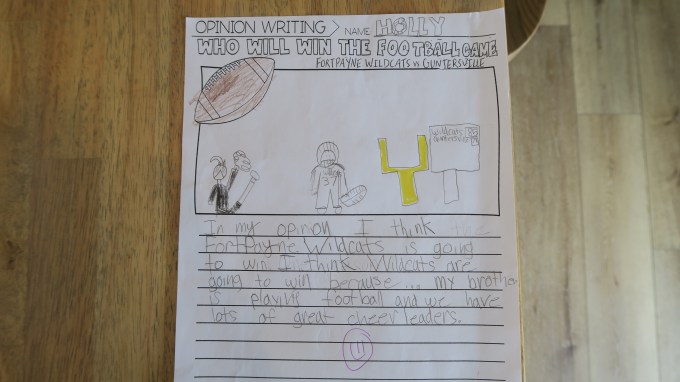 OPINION WRITING NAME HOLLY
WHO WILL WIN THE FOOTBALL GAME
FORT PAYNE WILDCATS VS GUNTERSVILLE
Wildcats
Guntersville
37
In my opinion I think the
Fort Payne Wildcats is going
to win. I think Wildcats are
going to win because... my brother
is playing football and we have
lots of great cheer leaders.